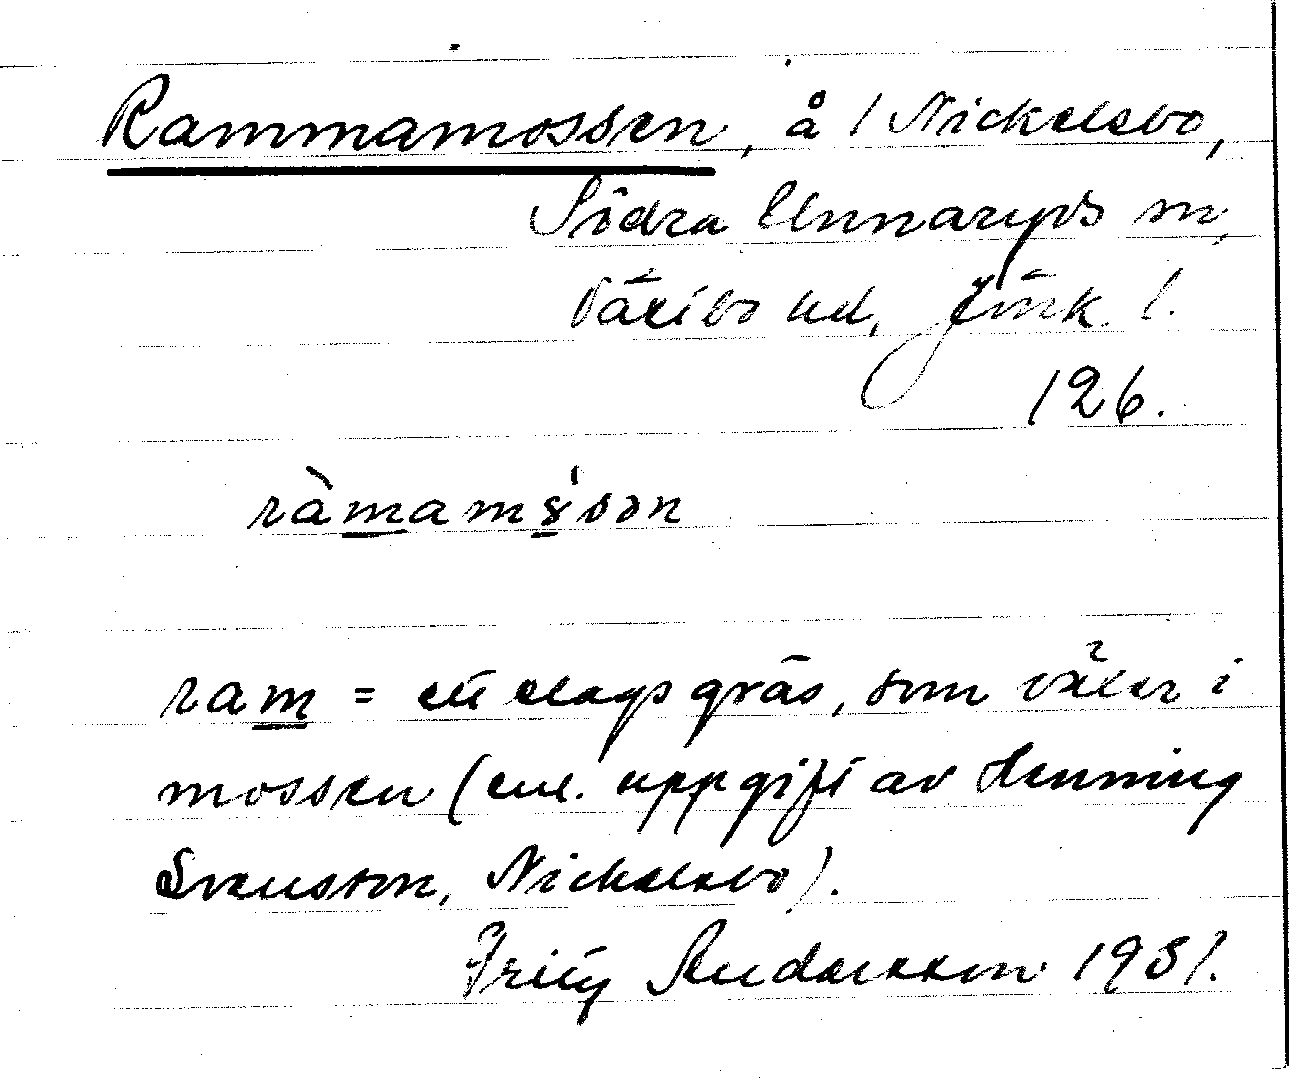 Rammamossen, å / Nickelsbo,
Södra Unnaryds sn,
Västbo hd, Jönk. l.
126.
ràmamɤ́sən
ram = ett slags gräs, som växer i
mossen (enl. uppgift av Henning
Svensson, Nickelsbo).
Fritz Andersson 1951.